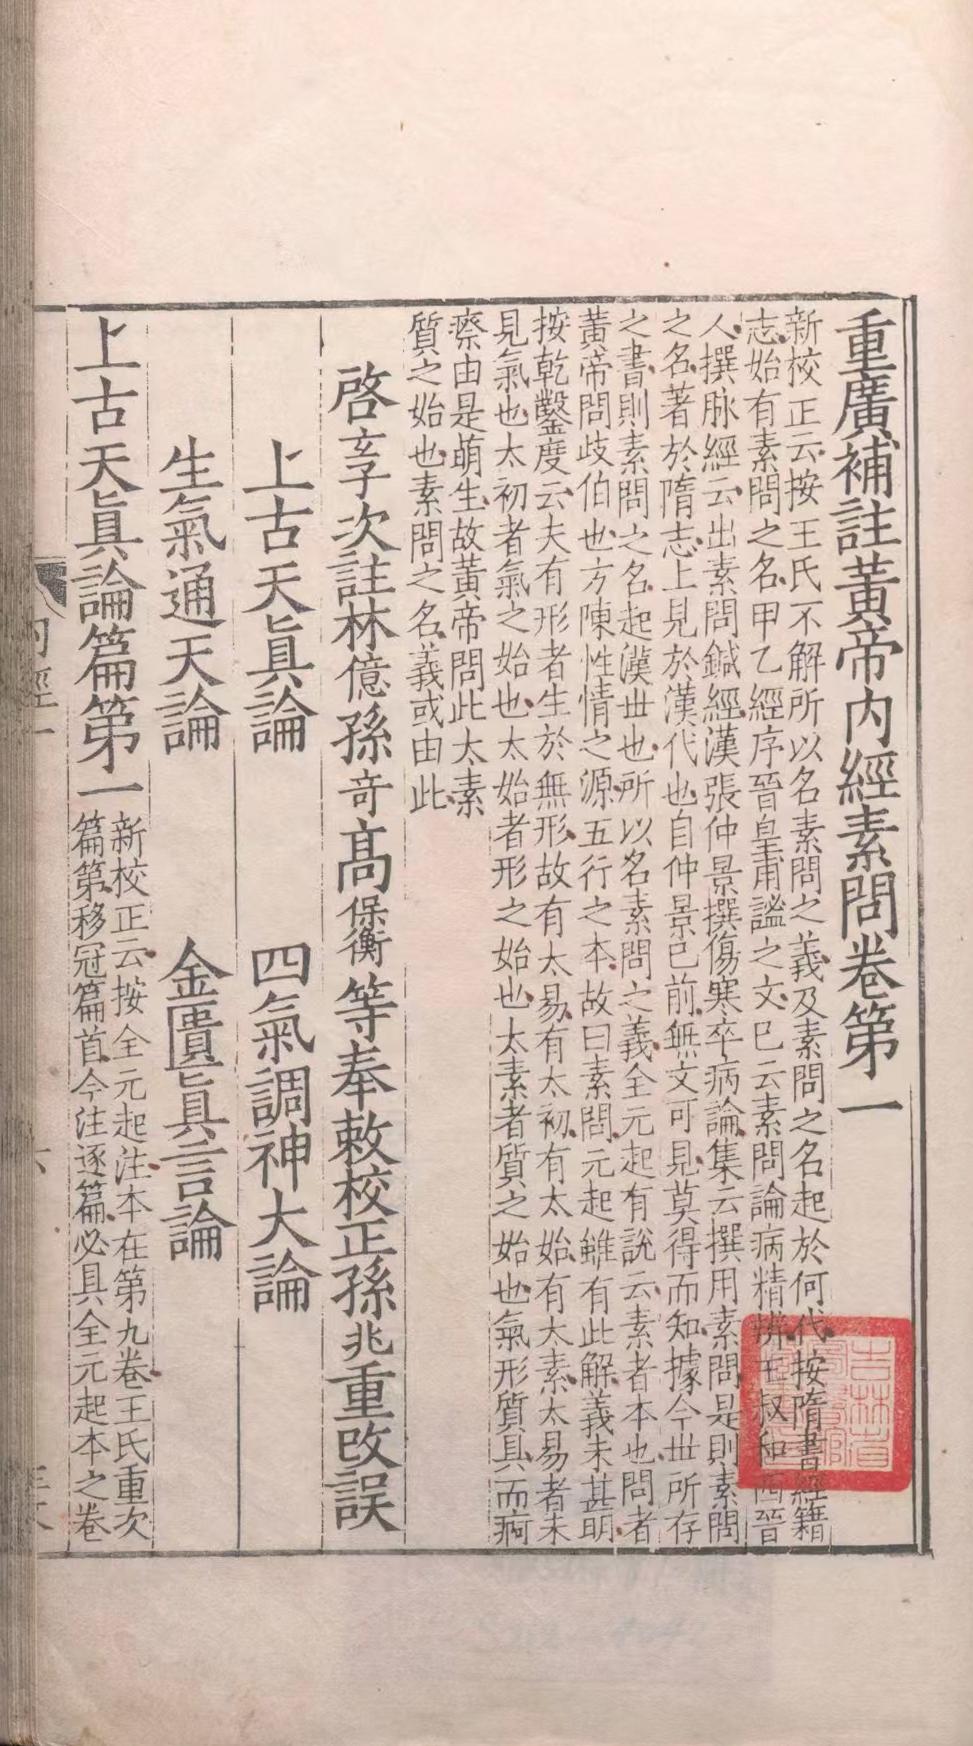 重廣補註黃帝内經素問卷第一
新校正云按王氏不解所以名素問之義及素問之名起於何代按隋書經籍
志始有素問之名甲乙經序晉皇甫謐之文已云素問論病精辨王叔和西晉
人撰脉經云出素問鍼經漢張仲景撰傷寒卒病論集云撰用素問是則素問
之名著於隋志上見於漢代也自仲景已前無文可見莫得而知據今世所存
之書則素問之名起漢世也所以名素問之義全元起有說云素者本也問者
黃帝問歧伯也方陳性情之源五行之本故曰素問元起雖有此解義未甚明
按乾鑿度云夫有形者生於無形故有太易有太初有太始有太素太易者未
見氣也太初者氣之始也太始者形之始也太素者質之始也氣形質具而痾
瘵由是萌生故黃帝問此太素
質之始也素問之名義或由此
啓玄子次註林億孫奇高保衡等奉敕校正孫兆重改誤
上古天真論 四氣調神大論
生氣通天論 金匱真言論
上古天真論篇第一
新校正云按全元起注本在第九卷王氏重次
篇第移冠篇首今注逐篇必具全元起本之卷
内經一
吉林省